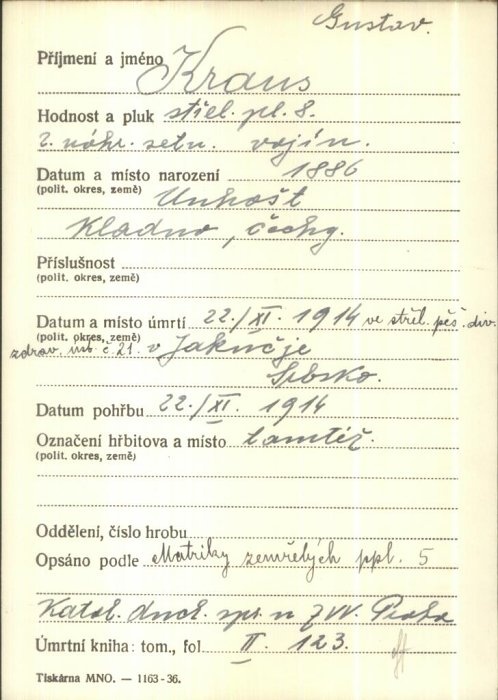 Gustav.
Příjmení a jméno Kraus
Hodnost a pluk střel. pl. 8.
2. náhr. setn. vojín.
Datum a místo narození 1886
(polit. okres, země) Unhošt
Kladno, Čechy.
Příslušnost
(polit. okres, země)
Datum a místo úmrtí 22./XI. 1914 ve střel. pěš. div.
(polit. okres, země)
zdrav. úst. č 21. v Jakučje
Srbsko.
Datum pohřbu 22./XI. 1914
Označení hřbitova a místo tamtéž.
(polit. okres, země)
Oddělení, číslo hrobu
Opsáno podle Matriky zemřelých ppl. 5
Katol. duch. spr. u ZVV. Praha
Úmrtní kniha: tom., fol II. 123.
Tiskárna MNO. — 1163-36.